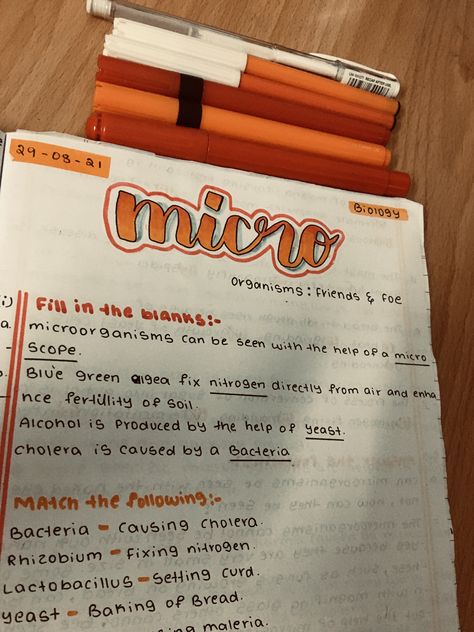 29-08-21
Biology
micro
organisms : Friends & Foe
i)
Fill in the blanks:-
a. microorganisms can be seen with the help of a micro
- scope.
Blue green algea fix nitrogen directly from air and enha
nce fertillity of soil.
Alcohol is produced by the help of yeast.
cholera is caused by a Bacteria
Match the following:-
Bacteria - causing cholera.
Rhizobium - Fixing nitrogen.
Lactobacillus - Setting curd.
yeast - Baking of Bread.
maleria.